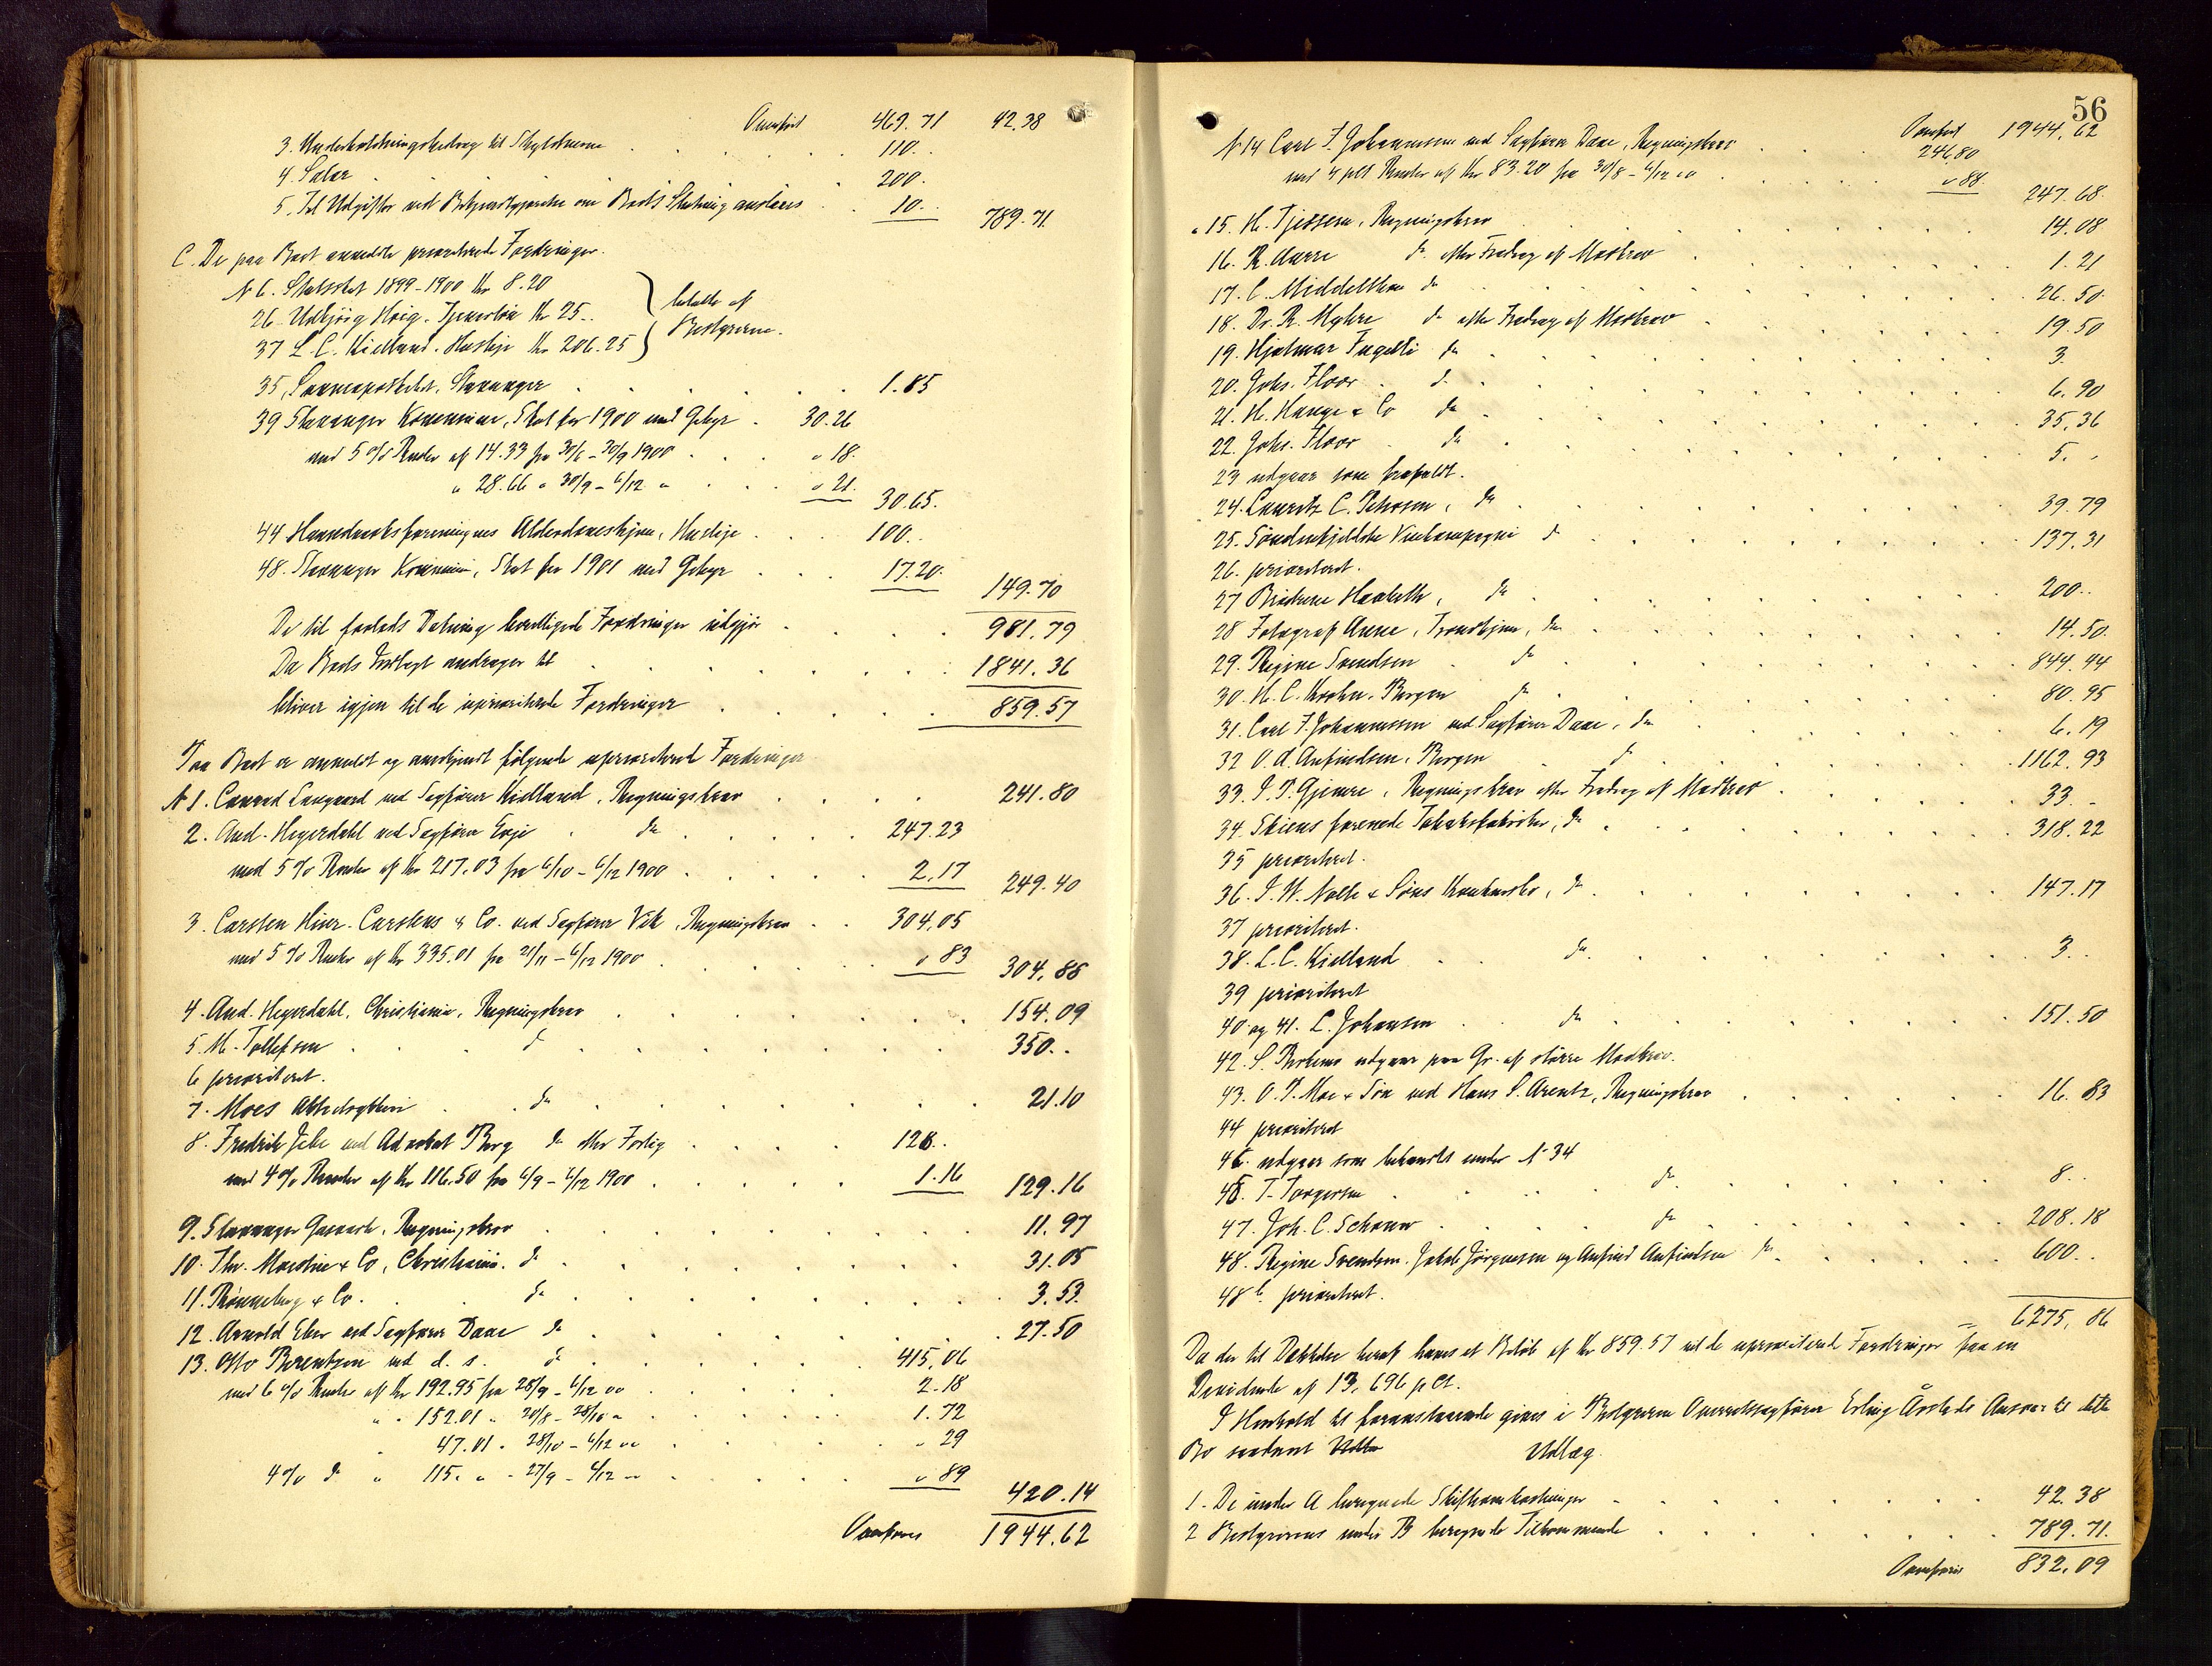 Overført 469.71 42.38
3. Underholdningsbidrag til Skyldnerne 110.
4. Salær 200.
5. Til Udgifter ved Bekjendtgjørelse om Boets Slutning anslaaes 10. 789.71
C. De paa Boet anmeldte prioriterede Fordringer.
N 6. Statsskat 1899-1900 Kr 8.20
26. Udbjörg Höig. Tjenerløn Kr 25.. } betalte af
37 L. C. Kielland. Husleje Kr 206.25 } Bestyreren.
35, Stavanger 1.85
39 Stavanger Kommune, Skat for 1900 med Gebyr 30.26
med 5 % Renter af 14.33 fra 30/6 - 30/9 1900 " 18.
" 28.66 " 30/9 - 6/12 " " 21. 30.65.
44 Haandværksforeningens Alderdomshjem, Husleje 100..
48. Stavanger Kommune, Skat for 1901 med Gebyr 17.20. 149.70
De til forlods Dækning berettigede Fordringer udgjør 981.79
Da Boets Indtægt andrager til 1841.36
bliver igjen til de uprioriterede Fordringer 859.57
I Boet er anmeldt og anerkjendt følgende uprioriterede Fordringer
N 1. Conrad Langaard ved Sagfører Kielland, Regningskrav 241.80
2. And. Hegerdahl ved Sagfører Evje do 247.23
med 5 % Renter af Kr 217.03 fra 6/10 - 6/12 1900 2.17 249.40
3. Carsten Hinr. Carstens & Co. ved Sagfører Vik, Regningskrav 304.05
med 5 % Renter af Kr 335.01 fra 21/11 - 6/12 1900 " 83 304.88
4. And. Hegerdahl, Christiania, Regningskrav 154.09
5. M. Tollefsen do 350..
6 prioriteret.
7. Moes do 21.10
8. Fredrik Jebe ved Advokat Berg do efter Forlig 128..
med 4 % Renter af Kr 116.50 fra 6/9 - 6/12 1900 1.16 129.16
9. Stavanger Gasværk, Regningskrav 11.97
10. Thr. Moestue & Co, Christiania. do 31.05
11. Rönneberg & Co. do 3.53
12. Arnold Eber ved Sagfører Daae do 27.50
13. Otto Berentzen ved d. s. do 415,06
med 6 % Renter af Kr 192.95 fra 28/9 - 6/12 00 2.18
" " 152.01 " 20/8 - 28/10 " 1.72
" 47.01 " 28/10 - 6/12 00 " 29
4 % do " 115. " " 27/9 - 6/12 " " 89 420.14
Overføres 1944.62
56
Overført 1944.62
N 14 Carl F. Johannessen ved Sagfører Daae, Regningskrav 246.80
med 4 pCt Renter af Kr 83.20 fra 30/8 - 6/12 00 " 88. 247.68.
" 15. H. Tjessem, Regningskrav 14.08
16. R. Aarre do efter Fradrag af Modkrav 1.21
17. C. Middelthon do 26.50
18. Dr. R. Myhre do efter Fradrag af Modkrav 19.50
19. Hjalmar Fugelli do 3.
20. Johs. Floor do 6.90
21. H. Hauge & Co do 35.36
22. Johs. Floor do 5. "
23 udgaar som frafaldt.
24. Lauritz C. Pehrson, do 39.79
25. Söndenfjeldske Vinkompagni do 137.31
26. prioriteret.
27 Brödrene Haabeth, do 200..
28 Fotograf Aune, Trondhjem, do 14.50.
29. Regine Svendsen do 844.44
30. H. C. Krohn. Bergen do 80.95
31. Carl F. Johannessen ved Sagfører Daae, do 6.19
32 O. A. Anfindsen, Bergen do 1162.93
33. I. T. Gjemre, Regningskrav efter Fradrag af Modkrav 33. -
34. Skiens forenede Tobaksfabriker, do 318.22
35 prioriteret.
36. I. W. Nolte & Söns Konkursbo, do 147.17
37 prioriteret.
38. L. C. Kielland do 3..
39 prioriteret
40 og 41. L. Johansen do 151.50
42. S. udgaar paa Gr. af større Modkrav.
43. O. T. Moe & Søn ved Hans S. Arentz, Regningskrav 16.83
44 prioriteret
45. udgaar som behandlet under N 34
46. T. Torgersen do 8..
47. Joh. C. Schanw do 208.18
48. Regine Svendsen. Jakob Jörgensen og Anfind Anfindsen do 600..
48b. prioriteret.
6275,86
Da der til Dækkelse heraf haves et Beløb af Kr 859.57 vil de uprioriterede Fordringer faa en
Dividende af 13,696 p Ct.
I Henhold til foranstaaende gives i Bestyreren Overretssagfører Erling Årstads Ansvar til dette
Bo saadant Udlæg.
1. De under A beregnede Skifteomkostninger 42.38
2 Bestyrerens under B beregnede Tilkommende 789.71.
Overføres 832.09